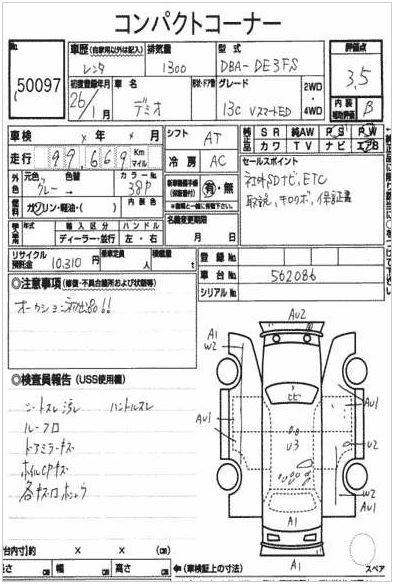 コンパクトコーナー
出品No.
50097
車歴(自家用以外は記入)
レンタ
排気量
1300
型式
DBA-DE3FS
評価点
3.5
初度登録年月
26/1月
車名
デミオ
グレード
13C VスマートED
2WD
4WD
内装
補助評価
B
車検 × 年 × 月
シフト
AT
純正品
SR 純AW PS PW
カワ TV ナビ エアB
走行 99,669 Km マイル
冷房
AC
セールスポイント
社外SDナビ、ETC
取説、キロクボ、保証書
外色
元色 色替
グレー→
カラーNo.
38P
内装色
燃料
ガソリン・軽油・( )
有・無
名義変更期限
月 日
年式
輸入区分
ディーラー・並行
ハンドル
左・右
リサイクル預託金
10,310円
乗車定員
人
積載量
t
登録No.
車台No.
502086
シリアルNo.
◎注意事項(修復・不具合箇所および状態等)
オークション初出品!!
◎検査員報告(USS使用欄)
シートスレ汚レ ハンドルスレ
ドアミラーキズ
A1
W2
AU2
AU1
AU1
U3
U2
W2
AU1
A1
A1
スペア
台内寸(約) × × (cm)
長さ (cm) 幅 (cm) 高さ (cm)
←(車検証上の寸法)